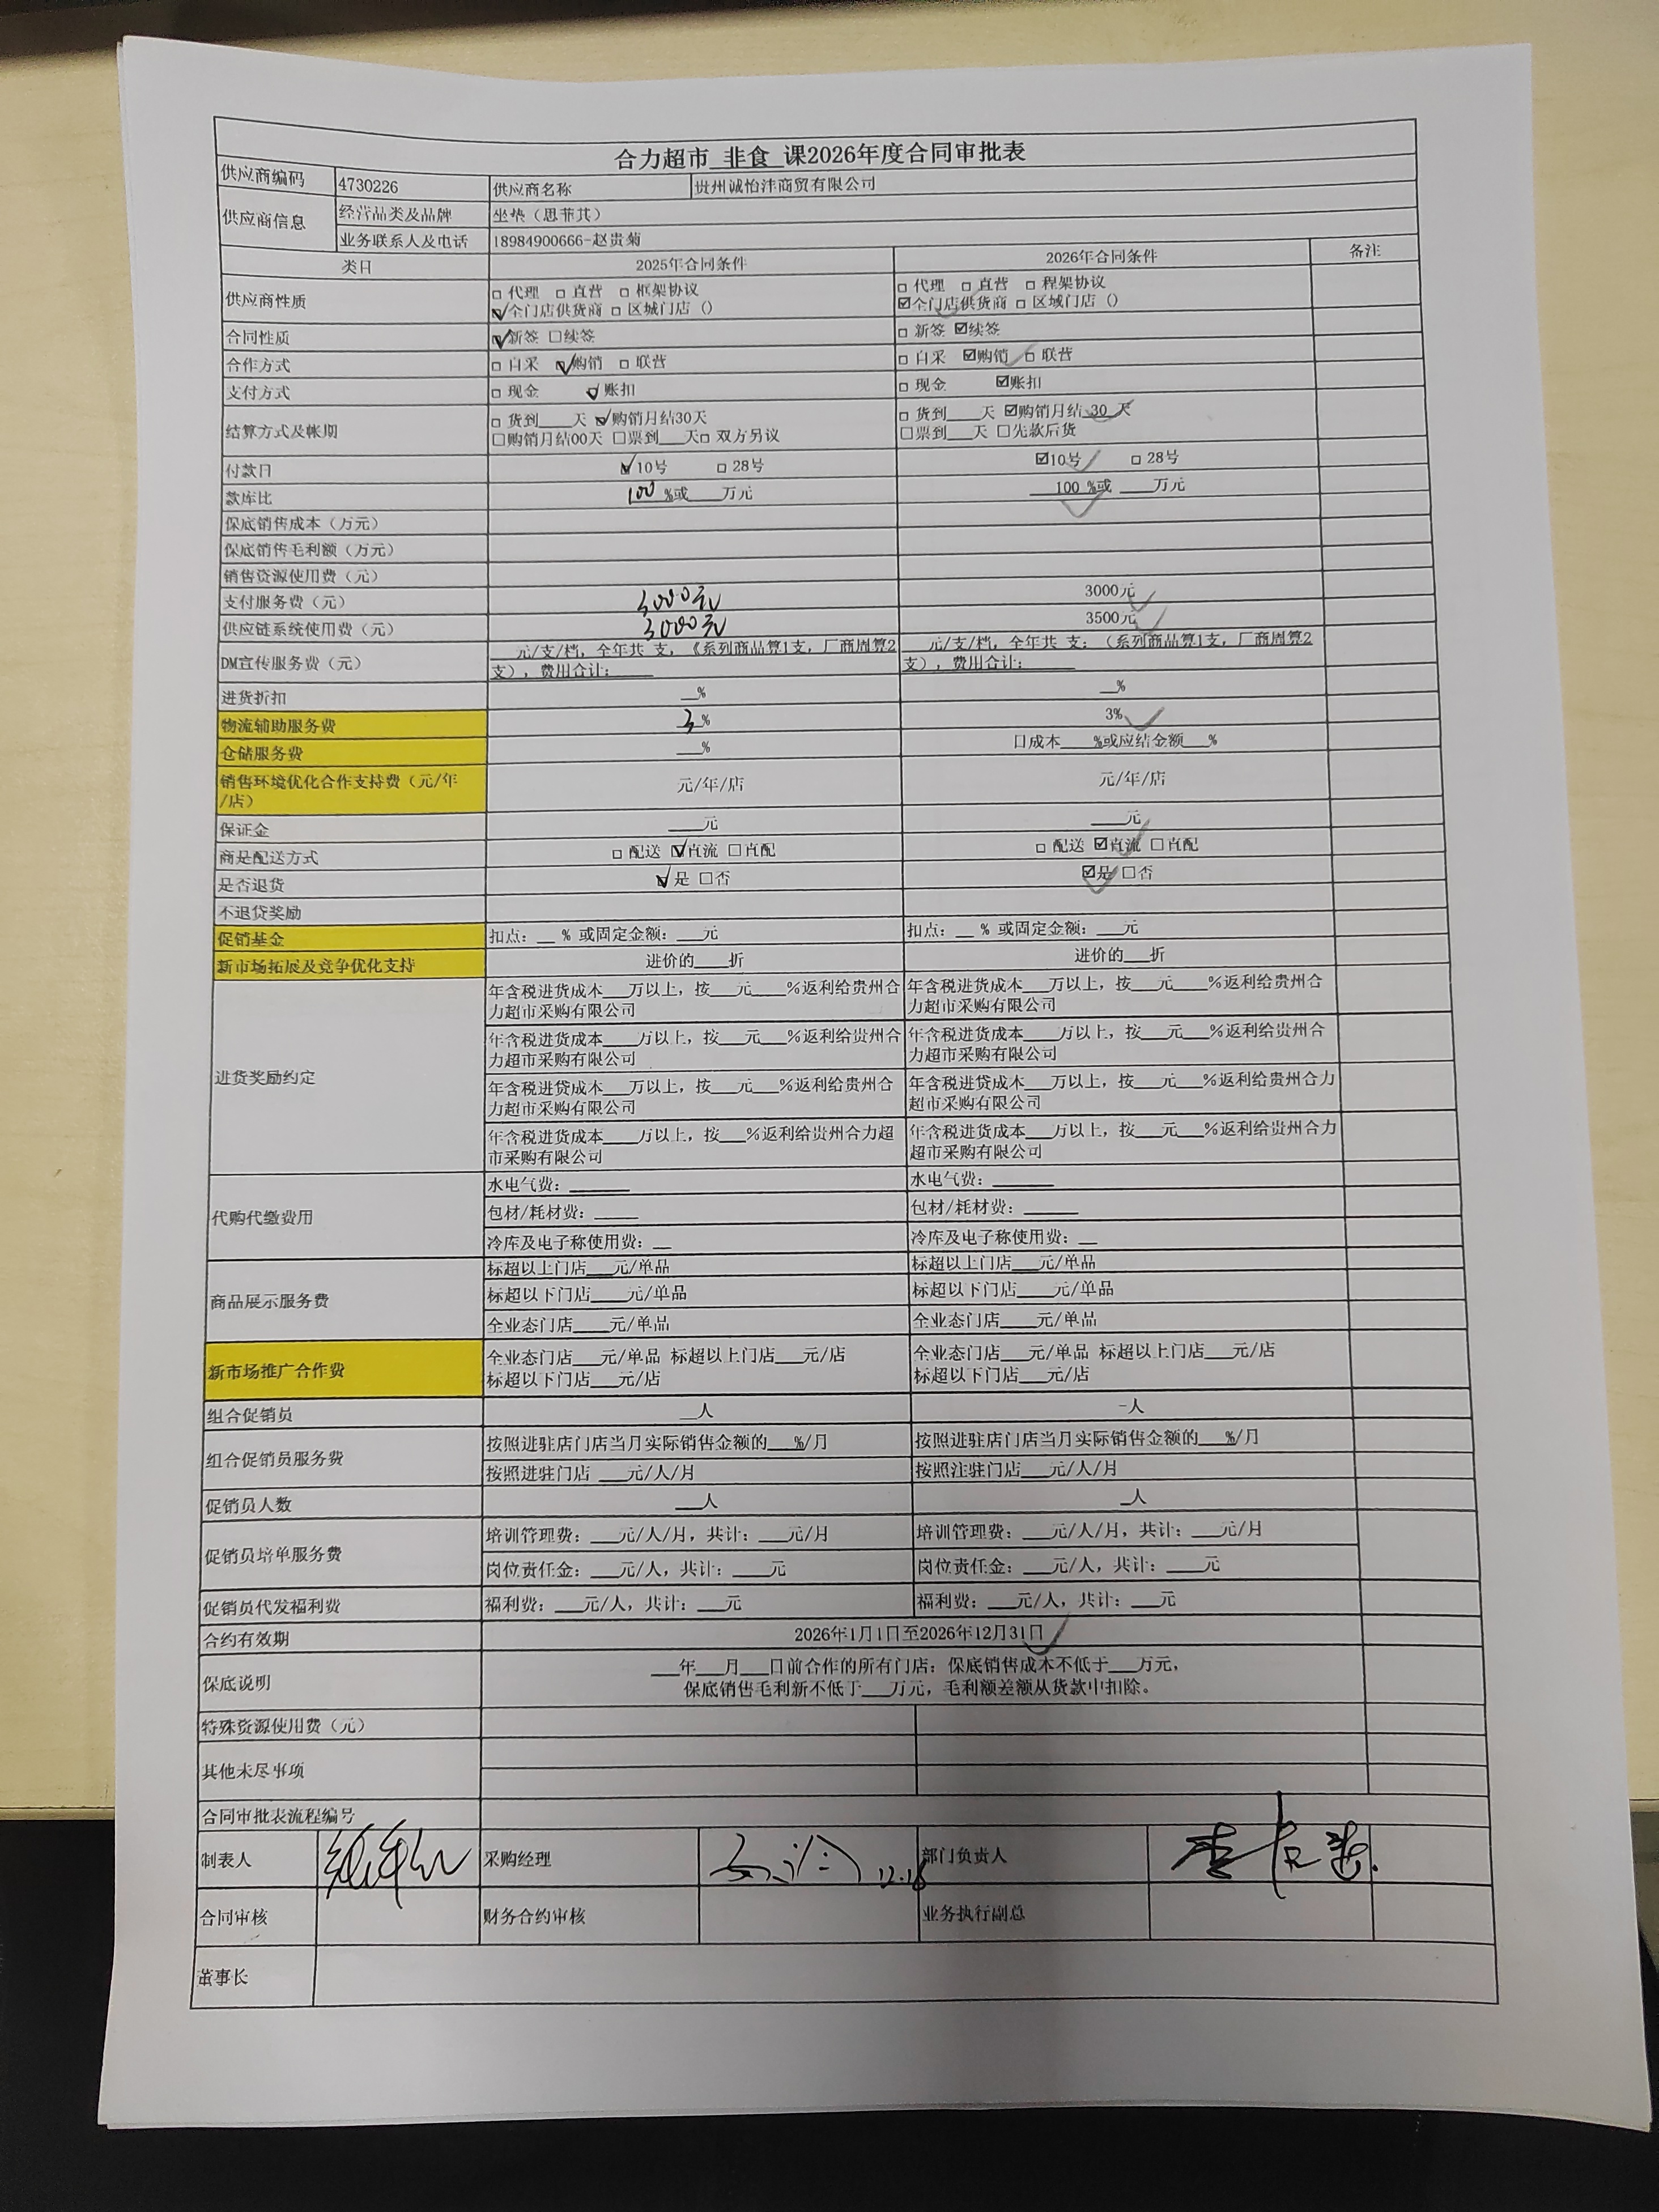 合力超市 非食 课2026年度合同审批表
供应商编码 4730226 供应商名称 贵州诚怡沣商贸有限公司
供应商信息 经营品类及品牌 坐垫（思菲其）
业务联系人及电话 18984900666-赵贵菊
类目 2025年合同条件 2026年合同条件 备注
供应商性质 □ 代理 □ 直营 □ 框架协议 □ 代理 □ 直营 □ 程架协议
☑全门店供货商 □ 区城门店（） ☑全门店供货商 □ 区域门店（）
合同性质 ☑新签 □续签 □ 新签 ☑续签
合作方式 □ 自采 ☑购销 □ 联营 □ 自采 ☑购销 □ 联营
支付方式 □ 现金 ☑账扣 □ 现金 ☑账扣
结算方式及帐期 □ 货到____天 ☑购销月结30天 □ 货到____天 ☑购销月结 30 天
□购销月结00天 □票到___天□ 双方另议 □票到___天 □先款后货
付款日 ☑10号 □ 28号 ☑10号 □ 28号
款库比 100 %或____万元 100 %或 ____万元
保底销售成本（万元）
保底销售毛利额（万元）
销售资源使用费（元）
支付服务费（元） 3000元 3000元
供应链系统使用费（元） 3000元 3500元
DM宣传服务费（元） ___元/支/档，全年共 支，《系列商品算1支，厂商周算2 ___元/支/档，全年共 支；（系列商品算1支，厂商周算2
支），费用合计：_____ 支），费用合计：_____
进货折扣 __% __%
物流辅助服务费 3% 3%
仓储服务费 ___% 口成本____%或应结金额___%
销售环境优化合作支持费（元/年 元/年/店 元/年/店
/店）
保证金 ____元 ____元
商是配送方式 □ 配送 ☑直流 □直配 □ 配送 ☑直流 □直配
是否退货 ☑是 □否 ☑是 □否
不退贷奖励
促销基金 扣点：__ % 或固定金额：___元 扣点：__ % 或固定金额：___元
新市场拓展及竞争优化支持 进价的___折 进价的___折
进货奖励约定 年含税进货成本___万以上，按___元____%返利给贵州合 年含税进货成本___万以上，按___元____%返利给贵州合
力超市采购有限公司 力超市采购有限公司
年含税进货成本____万以上，按___元___%返利给贵州合 年含税进货成本____万以上，按___元___%返利给贵州合
力超市采购有限公司 力超市采购有限公司
年含税进贷成本___万以上，按___元___%返利给贵州合 年含税进贷成本___万以上，按___元___%返利给贵州合力
力超市采购有限公司 超市采购有限公司
年含税进货成本____万以上，按___%返利给贵州合力超 年含税进货成本___万以上，按___元___%返利给贵州合力
市采购有限公司 超市采购有限公司
代购代缴费用 水电气费：_______ 水电气费：_______
包材/耗材费：_____ 包材/耗材费：______
冷库及电子称使用费：__ 冷库及电子称使用费：__
商品展示服务费 标超以上门店___元/单品 标超以上门店___元/单品
标超以下门店____元/单品 标超以下门店____元/单品
全业态门店____元/单品 全业态门店____元/单品
新市场推广合作费 全业态门店___元/单品 标超以上门店___元/店 全业态门店___元/单品 标超以上门店___元/店
标超以下门店___元/店 标超以下门店___元/店
组合促销员 __人 -人
组合促销员服务费 按照进驻店门店当月实际销售金额的___%/月 按照进驻店门店当月实际销售金额的___%/月
按照进驻门店 ___元/人/月 按照注驻门店___元/人/月
促销员人数 ___人 _人
促销员培单服务费 培训管理费：___元/人/月，共计：___元/月 培训管理费：___元/人/月，共计：___元/月
岗位责任金：___元/人，共计：____元 岗位责任金：___元/人，共计：____元
促销员代发福利费 福利费：___元/人，共计：___元 福利费：___元/人，共计：___元
合约有效期 2026年1月1日至2026年12月31日
保底说明 ___年___月___日前合作的所有门店：保底销售成本不低于___万元，
保底销售毛利新不低于___万元，毛利额差额从货款中扣除。
特殊资源使用费（元）
其他未尽事项
合同审批表流程编号
制表人 采购经理 12.18 部门负责人
合同审核 财务合约审核 业务执行副总
董事长